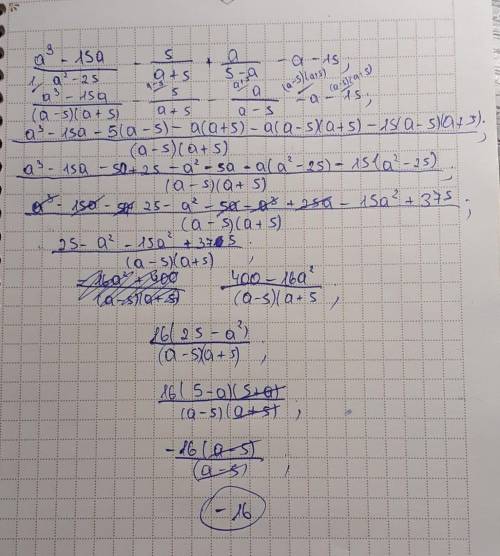 a³ - 15a / a² - 25 - 5 / a + 5 + a / 5 - a - a - 15;
a³ - 15a / (a - 5)(a + 5) - 5 / a + 5 - a / a - 5 - a - 15;
a³ - 15a - 5(a - 5) - a(a + 5) - a(a - 5)(a + 5) - 15(a - 5)(a + 5) / (a - 5)(a + 5);
a³ - 15a - 5a + 25 - a² - 5a - a(a² - 25) - 15(a² - 25) / (a - 5)(a + 5);
a³ - 15a - 5a 25 - a² - 5a - a³ + 25a - 15a² + 375 / (a - 5)(a + 5);
25 - a² - 15a² + 375 / (a - 5)(a + 5);
400 - 16a² / (a - 5)(a + 5;
16(25 - a²) / (a - 5)(a + 5);
16(5 - a)(5 + a) / (a - 5)(a + 5);
-16(a - 5) / (a - 5);
- 16